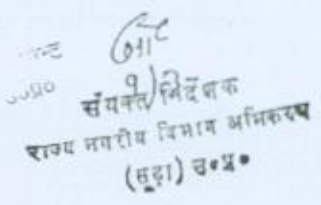 उ०प्र०
संयुक्त निदेशक
राज्य नगरीय विकास अभिकरण
(सूडा) उ०प्र०